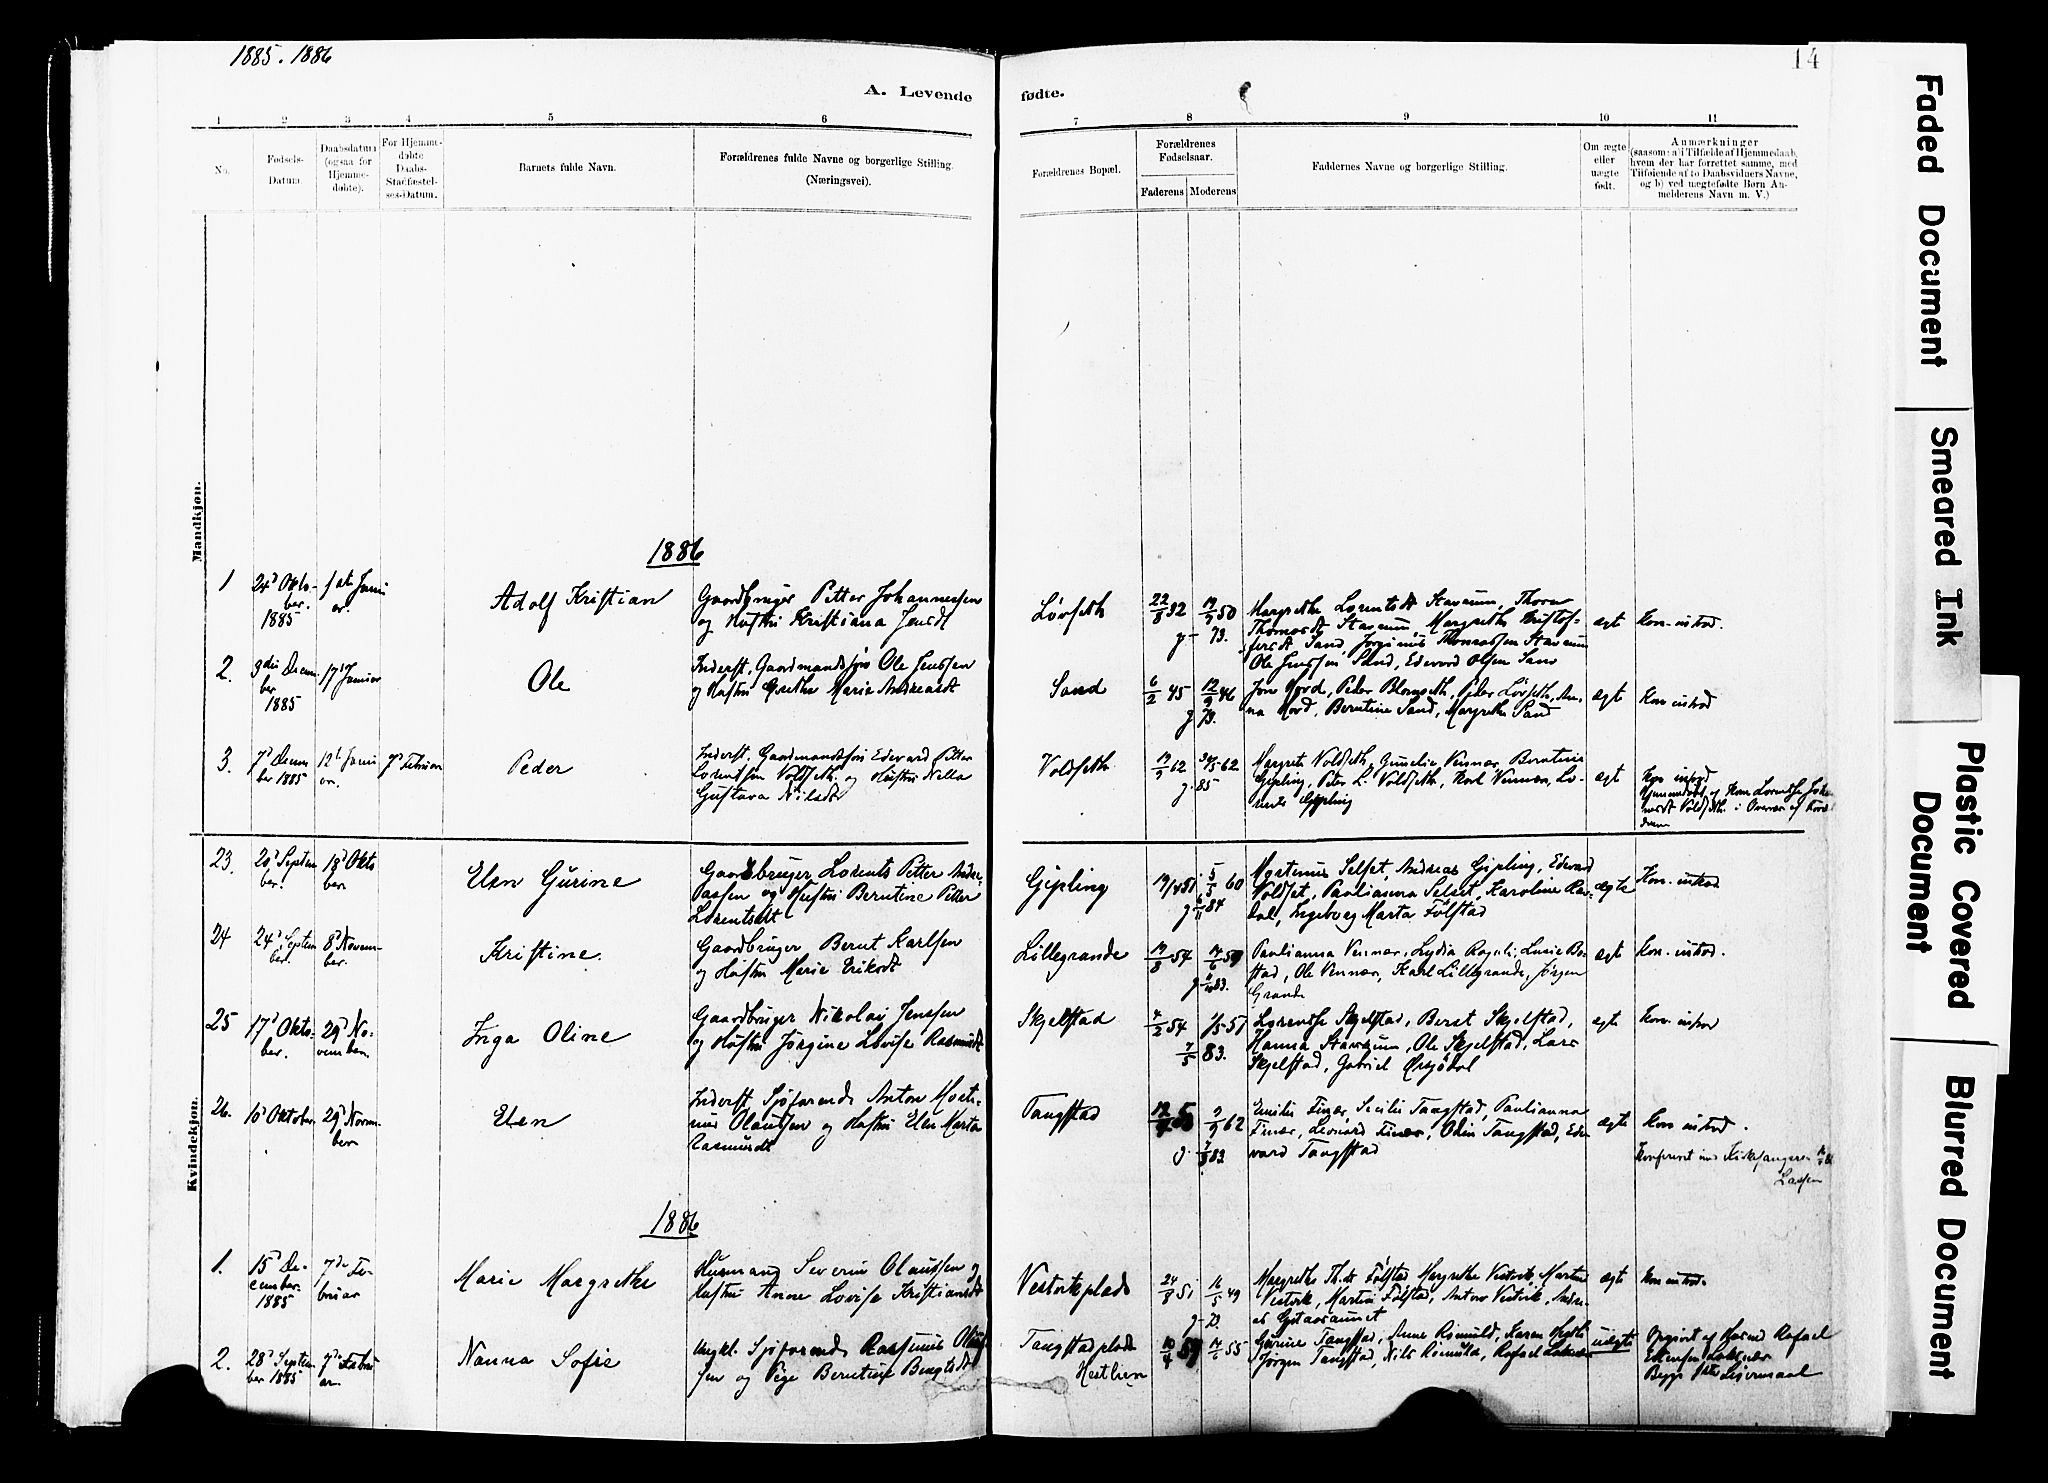 1885. 1886
14
A. Levende fødte.
1 2 3 4 5 6 7 8 9 10 11
No.
Fødsels-
Datum.
Daabsdatum
(ogsaa for
Hjemme-
døbte).
For Hjemme-
døbte
Daabs-
Stadfæstel-
ses-Datum.
Barnets fulde Navn.
Forældrenes fulde Navne og borgerlige Stilling.
(Næringsvei).
Forældrenes Bopæl.
Forældrenes
Fødselsaar.
Faderens Moderens
Faddernes Navne og borgerlige Stilling.
Om ægte
eller
uægte
født.
Anmærkninger
(saasom: a) i Tilfælde af Hjemmedaab,
hvem der har forrettet samme, med
Tilføiende af to Daabsvidners Navne,
og b) ved uægtefødte Børn An-
melderens Navn m. V.)
Mandkjøn.
1886
1
24d Okto-
ber.
1885
Adolf Kristian
Gaardbruger Petter Johannessen
og Hustru Kristiana Jensdt
Løvseth
22/8 32
50
g 73.
Margrethe Lorentsdt Stavrum, Thora
Thomasdt Stavrum, Margrethe Kristof-
fersdt Sand, Jørginus Thomassen Stavrum
Ole Jenssen Sand, Edevard Olsen Sand
ægte
Kon. introd.
2.
ber
1885
17d Januar
Ole
Inderst, Gaardmandssøn Ole Jenssen
og Hustru Grethe Marie Andreasdt
Sand
6/2 45
12/9 46
g 73.
Jon Hord, Peder Blomseth, Peder Løvseth, An-
na Hord, Berntine Sand, Margrethe Sand
ægte
Kon introd
3.
7d Decem
ber 1885
12t Janu
ar.
7d Februar
Peder
Inderst, Gaardmandssøn Edevard Petter
Lorentsen Voldseth og Hustru Nella
Gustava Nilsdt
Voldseth
62
62
g. 85
Margrete Voldseth, Gunelie Vennær, Berntine
Gipling, Peter L. Voldseth, Karl Vennær, Lo-
rents Gipling
ægte
Kon introd
Hjemmedøbt af Kone Lorentse Joha
nesdt Voldseth i Overvær af Foræl
drene
Kvindekjøn.
23.
20d Septem
ber.
18d Okto
ber
Elen Gurine
Gaardbruger Lorents Petter Andre-
assen og Hustru Berntine Petter
Lorentsdt
Gipling
51
5/5 60
g 84
Mortinus Selset, Andreas Gipling, Edevard
Voldset, Paulianna Selset, Karoline Ræ-
dal, Ingeborg Marta Fölstad
ægte
Kon. introd
24
24d Septem
ber.
8d Novem-
ber.
Kristine.
Gaardbruger Bernt Karlsen
og Hustru Marie Eriksdt
Lillegrande
54
g 83.
Paulianna Vennær, Lydia Rognli, Lucie Bo-
stad, Ole Vennær, Karl Lillegrande, Jørgen
Grande
ægte
Kon. introd.
25
17d Okto-
ber.
29d No-
vember
Inga Oline
Gaardbruger Nikolai Jenssen
og Hustru Jørgine Lovise Rasmusdt
Skjelstad
54
1/5-51
7/5 83.
Lorentse Skjelstad, Beret Skjelstad,
Hanna Stavrum, Ole Skjelstad, Lars
Skjelstad, Gabriel
ægte
Kon. introd
26.
10d Oktober
29d Novem-
ber
Elen
Inderst Sjøfarende Anton Morti-
nus Olaussen og Hustru Elen Marta
Rasmusdt
Tangstad
9/9 62
g. 83
Emilie Finær, Secilie Tangstad, Paulianna
Finær, Leonard Finær, Odin Tangstad, Ede-
vard Tangstad
ægte
Kon introd.
Konfereret
1886
1.
15d De-
cember.
1885
7de Fe-
bruar
Marie Margrethe
Husmand Severin Olaussen og
Hustru Anne Lovise Kristiansdt
Vestvikplads
24/8 51
16/5 49
Margrethe Th.dt Fölstad Margrethe Vestvik, Martha
Vestvik, Martin Fölstad, Anton Vestvik, Andre-
as Gjetaasaunet
ægte
Kon introd.
2.
28d Septem
ber 1885
7de Febru
ar.
Nanna Sofie
Ungkl. Sjøfarende Rasmus Olaus-
sen og Pige Berntine Bengtsdt
Tangstadplads
Hestlien
55
Gurine Tangstad, Anne Römuld, Karen
Jørgen Tangstad, Nils Römuld, Rafael
uægte
Opgivet af Husmd Rafael
Begges 1ste Leiermaal
Faded Document
Smeared Ink
Plastic Covered
Document
Blurred Document